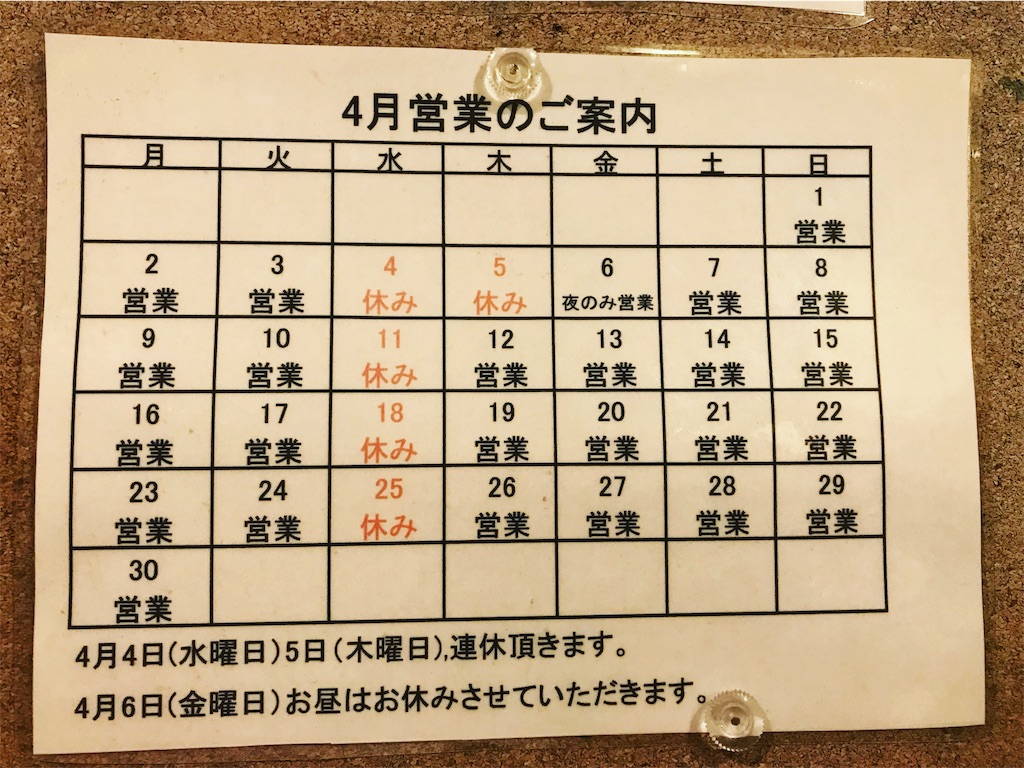 4月営業のご案内
月 火 水 木 金 土 日
1
営業
2 3 4 5 6 7 8
営業 営業 休み 休み 夜のみ営業 営業 営業
9 10 11 12 13 14 15
営業 営業 休み 営業 営業 営業 営業
16 17 18 19 20 21 22
営業 営業 休み 営業 営業 営業 営業
23 24 25 26 27 28 29
営業 営業 休み 営業 営業 営業 営業
30
営業
4月4日(水曜日)5日(木曜日),連休頂きます。
4月6日(金曜日)お昼はお休みさせていただきます。